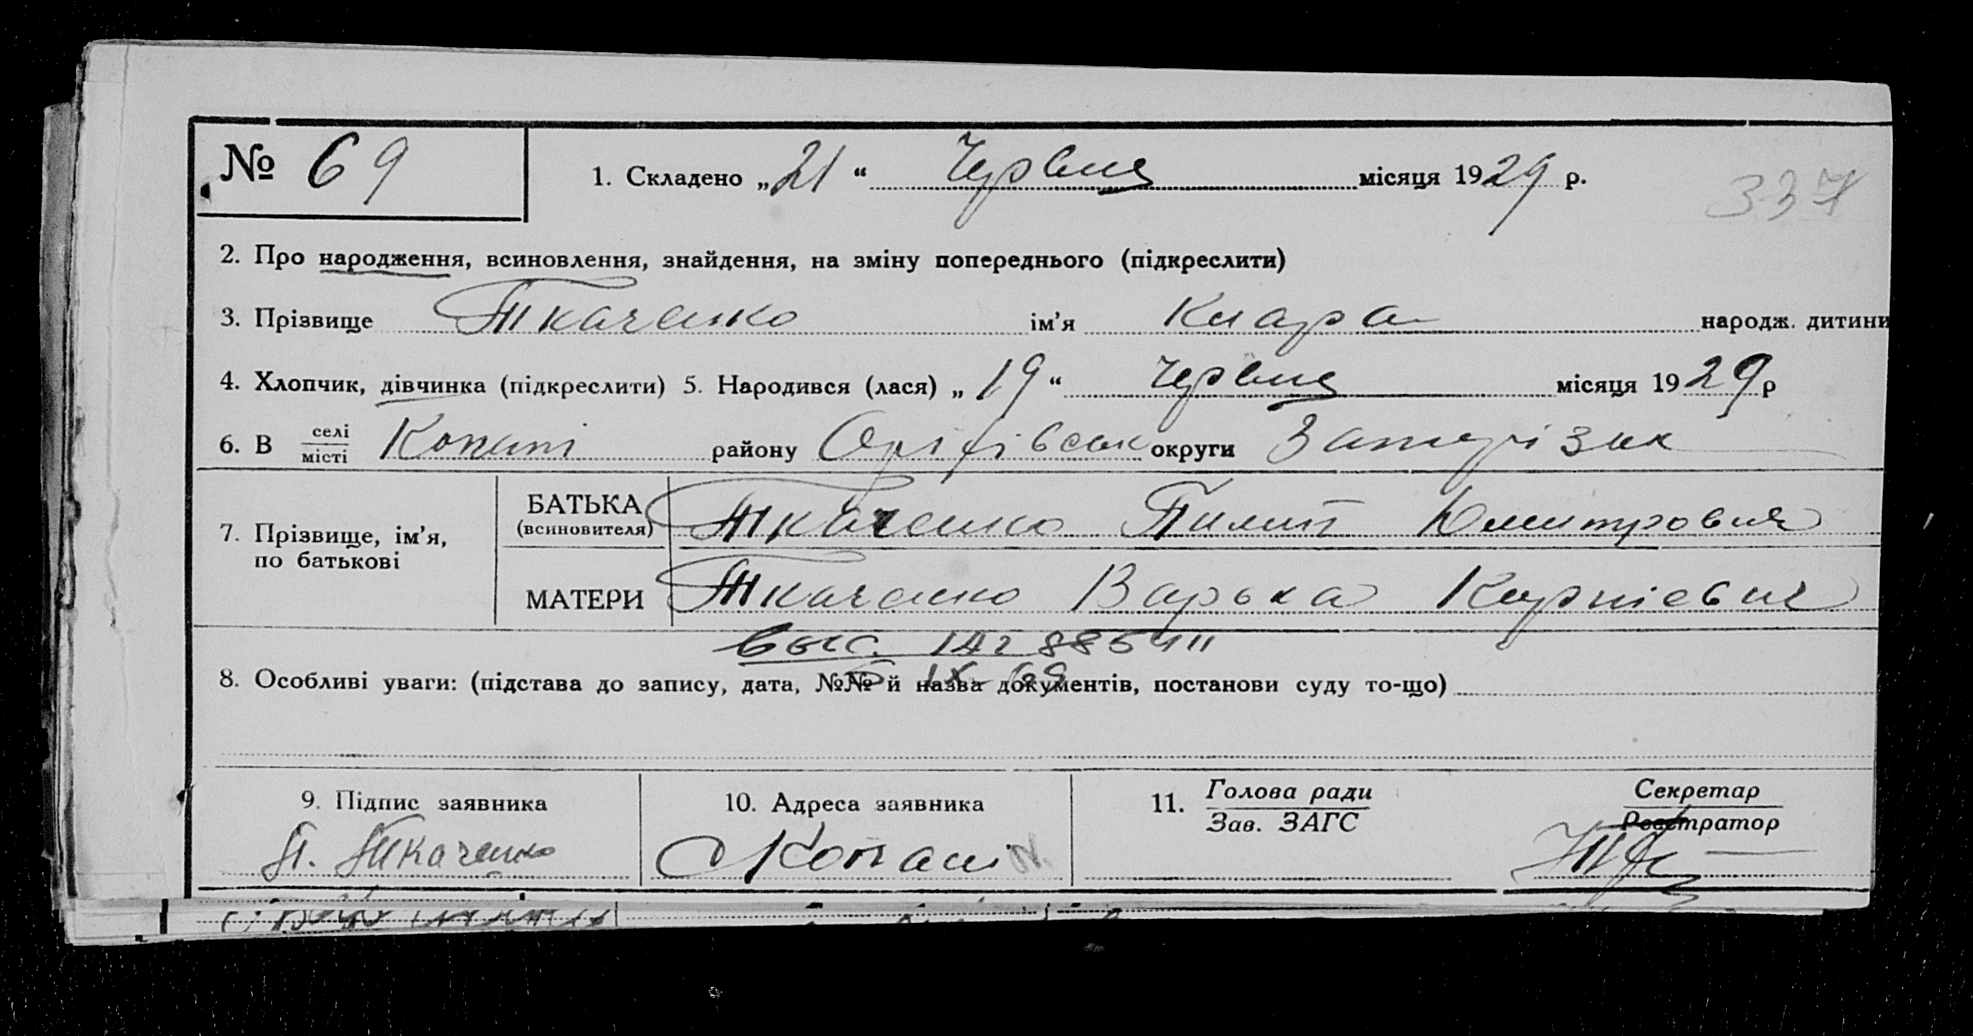 № 69
1. Складено „21“ Червня місяця 1929 р.
337
2. Про народження, всиновлення, знайдення, на зміну попереднього (підкреслити)
3. Прізвище Ткаченко ім'я Клара народж. дитини
4. Хлопчик, дівчинка (підкреслити) 5. Народився (лася) „19“ Червня місяця 1929 р
6. В селі місті Копані району Оріхівськ округи Запорізьк
7. Прізвище, ім'я, по батькові
БАТЬКА (всиновителя) Ткаченко Пилип Дмитрович
МАТЕРИ Ткаченко Варька Курніевна
выс. 142 885411
IX-69
8. Особливі уваги: (підстава до запису, дата, №№ й назва документів, постанови суду то-що)
9. Підпис заявника
П. Ткаченко
10. Адреса заявника
Копані
11. Голова ради
Зав. ЗАГС
Секретар
Реєстратор